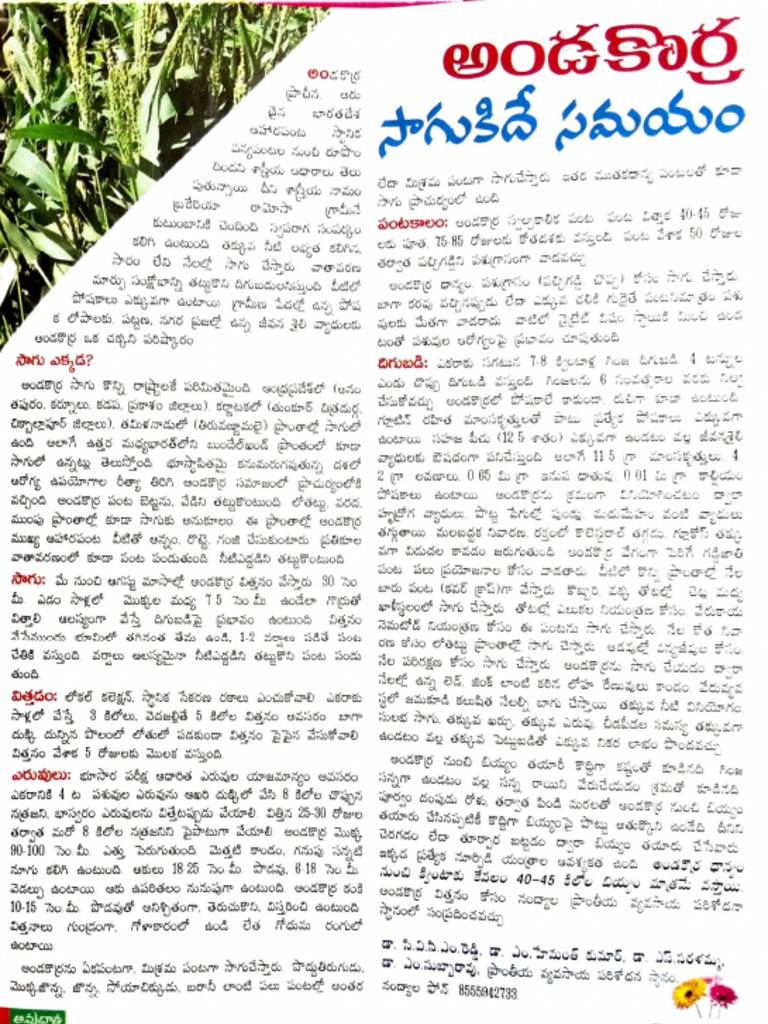 అండకొర్ర
సాగుకిదే సమయం
అండకొర్ర
ప్రాచీన, అరు
దైన భారతదేశ
ఆహారపంట స్థానిక
వన్యపంటల నుంచి రూపొం
దిందని శాస్త్రీయ ఆధారాలు తెలు
పుతున్నాయి దీని శాస్త్రీయ నామం
బ్రకేరియా రామోసా గ్రామీనే
కుటుంబానికి చెందింది స్వపరాగ సంపర్కం
కలిగి ఉంటుంది తక్కువ నీటి లభ్యత కలిగిన,
సారం లేని నేలల్లో సాగు చేస్తారు వాతావరణ
మార్పు సంక్షోభాన్ని తట్టుకొని దిగుబడులనిస్తుంది వీటిలో
పోషకాలు ఎక్కువగా ఉంటాయి గ్రామీణ పేదల్లో ఉన్న పోష
క లోపాలకు, పట్టణ, నగర ప్రజల్లో ఉన్న జీవన శైలి వ్యాధులకు
అండకొర్ర ఒక చక్కని పరిష్కారం
సాగు ఎక్కడ?
అండకొర్ర సాగు కొన్ని రాష్ట్రాలకే పరిమితమైంది. ఆంధ్రప్రదేశ్‌లో (అనం
తపురం, కర్నూలు, కడప, ప్రకాశం జిల్లాలు). కర్ణాటకలో (తుంకూర్ చిత్రదుర్గ,
చిక్బాల్లాపూర్ జిల్లాలు), తమిళనాడులో (తిరువణ్ణామలై) ప్రాంతాల్లో సాగులో
ఉంది అలాగే ఉత్తర మధ్యభారత్‌లోని బుందేల్‌ఖండ్ ప్రాంతంలో కూడా
సాగులో ఉన్నట్లు తెలుస్తోంది. భూస్థాపితమై కనుమరుగవుతున్న దశలో
ఆరోగ్య ఉపయోగాల రీత్యా తిరిగి అండకొర్ర సమాజంలో ప్రాచుర్యంలోకి
వచ్చింది అండకొర్ర పంట బెట్టను, వేడిని తట్టుకొంటుంది లోతట్టు, వరద,
ముంపు ప్రాంతాల్లో కూడా సాగుకు అనుకూలం. ఈ ప్రాంతాల్లో అండకొర్ర
ముఖ్య ఆహారపంట వీటితో అన్నం, రొట్టె, గంజి చేసుకుంటారు ప్రతికూల
వాతావరణంలో కూడా పంట పండుతుంది. నీటిఎద్దడిని తట్టుకొంటుంది
సాగు: మే నుంచి ఆగస్టు మాసాల్లో అండకొర్ర విత్తనం వేస్తారు 30 సెం.
మీ. ఎడం సాళ్లలో మొక్కల మధ్య 7.5 సెం.మీ. ఉండేలా గొర్రుతో
విత్తాలి ఆలస్యంగా వేస్తే దిగుబడిపై ప్రభావం ఉంటుంది విత్తనం
వేసేముందు భూమిలో తగినంత తేమ ఉండి, 1-2 వర్షాలు పడితే పంట
చేతికి వస్తుంది. వర్షాలు ఆలస్యమైనా నీటిఎద్దడిని తట్టుకొని పంట పండు
తుంది.
విత్తడం: లోకల్ కలెక్షన్, స్థానిక సేకరణ రకాలు ఎంచుకోవాలి ఎకరాకు
సాళ్లలో వేస్తే 3 కిలోలు, వెదజల్లితే 5 కిలోల విత్తనం అవసరం బాగా
దుక్కి దున్నిన పొలంలో లోతులో పడకుండా విత్తనం పైపైన వేసుకోవాలి
విత్తనం వేశాక 5 రోజులకు మొలక వస్తుంది.
ఎరువులు: భూసార పరీక్ష ఆధారిత ఎరువుల యాజమాన్యం అవసరం
ఎకరానికి 4 ట పశువుల ఎరువును ఆఖరి దుక్కిలో వేసి 8 కిలోల చొప్పున
నత్రజని, భాస్వరం ఎరువులను విత్తేటప్పుడు వేయాలి. విత్తిన 25-30 రోజుల
తర్వాత మరో 8 కిలోల నత్రజనిని పైపాటుగా వేయాలి అండకొర్ర మొక్క
80-100 సెం.మీ. ఎత్తు పెరుగుతుంది. మెత్తటి కాండం, గనుపు సన్నటి
నూగు కలిగి ఉంటుంది. ఆకులు 18-25 సెం.మీ పొడవు, 6-18 సెం.మీ.
వెడల్పు ఉంటాయి ఆకు ఉపరితలం నునుపుగా ఉంటుంది అండకొర్ర కంకి
10-15 సెం.మీ. పొడవుతో అనిశ్చితంగా, తెరుచుకొని, విస్తరించి ఉంటుంది
విత్తనాలు గుండ్రంగా, గోళాకారంలో ఉండి లేత గోధుమ రంగులో
ఉంటాయి
అండకొర్రను ఏకపంటగా, మిశ్రమ పంటగా సాగుచేస్తారు. పొద్దుతిరుగుడు,
మొక్కజొన్న, జొన్న, సోయాచిక్కుడు, బఠానీ లాంటి పలు పంటల్లో అంతర
లేదా మిశ్రమ పంటగా సాగుచేస్తారు ఇతర ముతకధాన్య పంటలతో కూడా
సాగు ప్రాచుర్యంలో ఉంది
పంటకాలం: అండకొర్ర స్వల్పకాలిక పంట పంట విత్తాక 40-45 రోజు
లకు పూత, 75-85 రోజులకు కోతదశకు వస్తుంది పంట వేశాక 50 రోజుల
తర్వాత పచ్చిగడ్డిని పశుగ్రాసంగా వాడవచ్చు
అండకొర్ర ధాన్యం, పశుగ్రాసం (పచ్చిగడ్డి, చొప్ప) కోసం సాగు చేస్తారు.
బాగా కరవు వచ్చినప్పుడు లేదా ఎక్కువ చలికి గురైతే పంటనిమాత్రం పశు
వులకు మేతగా వాడరాదు వాటిలో నైట్రేట్ విషం స్థాయికి మించి ఉండ
టంతో పశువుల ఆరోగ్యంపై ప్రభావం చూపుతుంది
దిగుబడి: ఎకరాకు సగటున 7-8 క్వింటాళ్ల గింజ దిగుబడి, 4 టన్నుల
ఎండు చొప్ప దిగుబడి వస్తుంది గింజలను 6 సంవత్సరాల వరకు నిల్వ
చేసుకోవచ్చు అండకొర్రలో పోషకాలే కాకుండా, రుచిగా కూడా ఉంటుంది.
గ్లూటిన్ రహిత మాంసకృత్తులతో పాటు ప్రత్యేక పోషకాలు ఎక్కువగా
ఉంటాయి సహజ పీచు (12.5 శాతం) ఎక్కువగా ఉండటం వల్ల జీవనశైలి
వ్యాధులకు ఔషధంగా పనిచేస్తుంది అలాగే 11.5 గ్రా మాంసకృత్తులు, 4.
2 గ్రా లవణాలు, 0.65 మి గ్రా ఇనుప ధాతువు, 0.01 మి గ్రా కాల్షియం
పోషకాలు ఉంటాయి అండకొర్రను క్రమంగా వినియోగించటం ద్వారా
హృద్రోగ వ్యాధులు, పొట్ట పేగుల్లో పుండ్లు, మధుమేహం వంటి వ్యాధులు
తగ్గుతాయి మలబద్ధక నివారణ, రక్తంలో కొలెస్టరాల్ తగ్గడం, గ్లూకోస్ తక్కు
వగా విడుదల కావడం జరుగుతుంది అండకొర్ర వేగంగా పెరిగే గడ్డిజాతి
పంట పలు ప్రయోజనాల కోసం వాడతారు. వీటిలో కొన్ని ప్రాంతాల్లో నేల
బారు పంట (కవర్ క్రాప్)గా వేస్తారు కొబ్బరి, వక్క తోటల్లో చెట్ల మధ్య
ఖాళీస్థలంలో సాగు చేస్తారు తోటల్లో ఎలుకల నియంత్రణ కోసం, వేరుకాయ
నెమటోడ్ నియంత్రణ కోసం ఈ పంటను సాగు చేస్తారు నేల కోత నివా
రణ కోసం లోతట్టు ప్రాంతాల్లో సాగు చేస్తారు అడవుల్లో వన్యజీవుల కోసం,
నేల పరిరక్షణ కోసం సాగు చేస్తారు అండకొర్రను సాగు చేయడం ద్వారా
నేలల్లో ఉన్న లెడ్, జింక్ లాంటి కఠిన లోహ రేణువులు కాండం, వేరువ్యవ
స్థలో జమకూడి కలుషిత నేలల్ని బాగు చేస్తాయి తక్కువ నీటి వినియోగం,
సులభ సాగు, తక్కువ ఖర్చు, తక్కువ ఎరువు, చీడపీడల సమస్య తక్కువగా
ఉండటం వల్ల తక్కువ పెట్టుబడితో ఎక్కువ నికర లాభం పొందవచ్చు
అండకొర్ర నుంచి బియ్యం తయారీ కొద్దిగా కష్టంతో కూడినది గింజ
సన్నగా ఉండటం వల్ల సన్న రాయిని వేరుచేయడం శ్రమతో కూడినది
పూర్వం దంపుడు రోళ్లు, తర్వాత పిండి మరలతో అండకొర్ర నుంచి బియ్యం
తయారు చేసినప్పటికీ కొద్దిగా బియ్యంపై పొట్టు అతుక్కొని ఉండేది దీనిని
చెరగడం లేదా తూర్పార బట్టడం ద్వారా బియ్యం తయారు చేసేవారు
ఇక్కడ ప్రత్యేక నూర్పిడి యంత్రాల ఆవశ్యకత ఉంది అండకొర్ర ధాన్యం
నుంచి క్వింటాకు కేవలం 40-45 కిలోల బియ్యం మాత్రమే వస్తాయి.
అండకొర్ర విత్తనం కోసం నంద్యాల ప్రాంతీయ వ్యవసాయ పరిశోధనా
స్థానంలో సంప్రదించవచ్చు
డా. సి.వి.సి.ఎం.రెడ్డి, డా. ఎం.హేమంత్ కుమార్, డా. ఎస్.సరళమ్మ,
డా. ఎం.సుబ్బారావు, ప్రాంతీయ వ్యవసాయ పరిశోధన స్థానం,
నంద్యాల ఫోన్ 8555942733
అన్నదాత